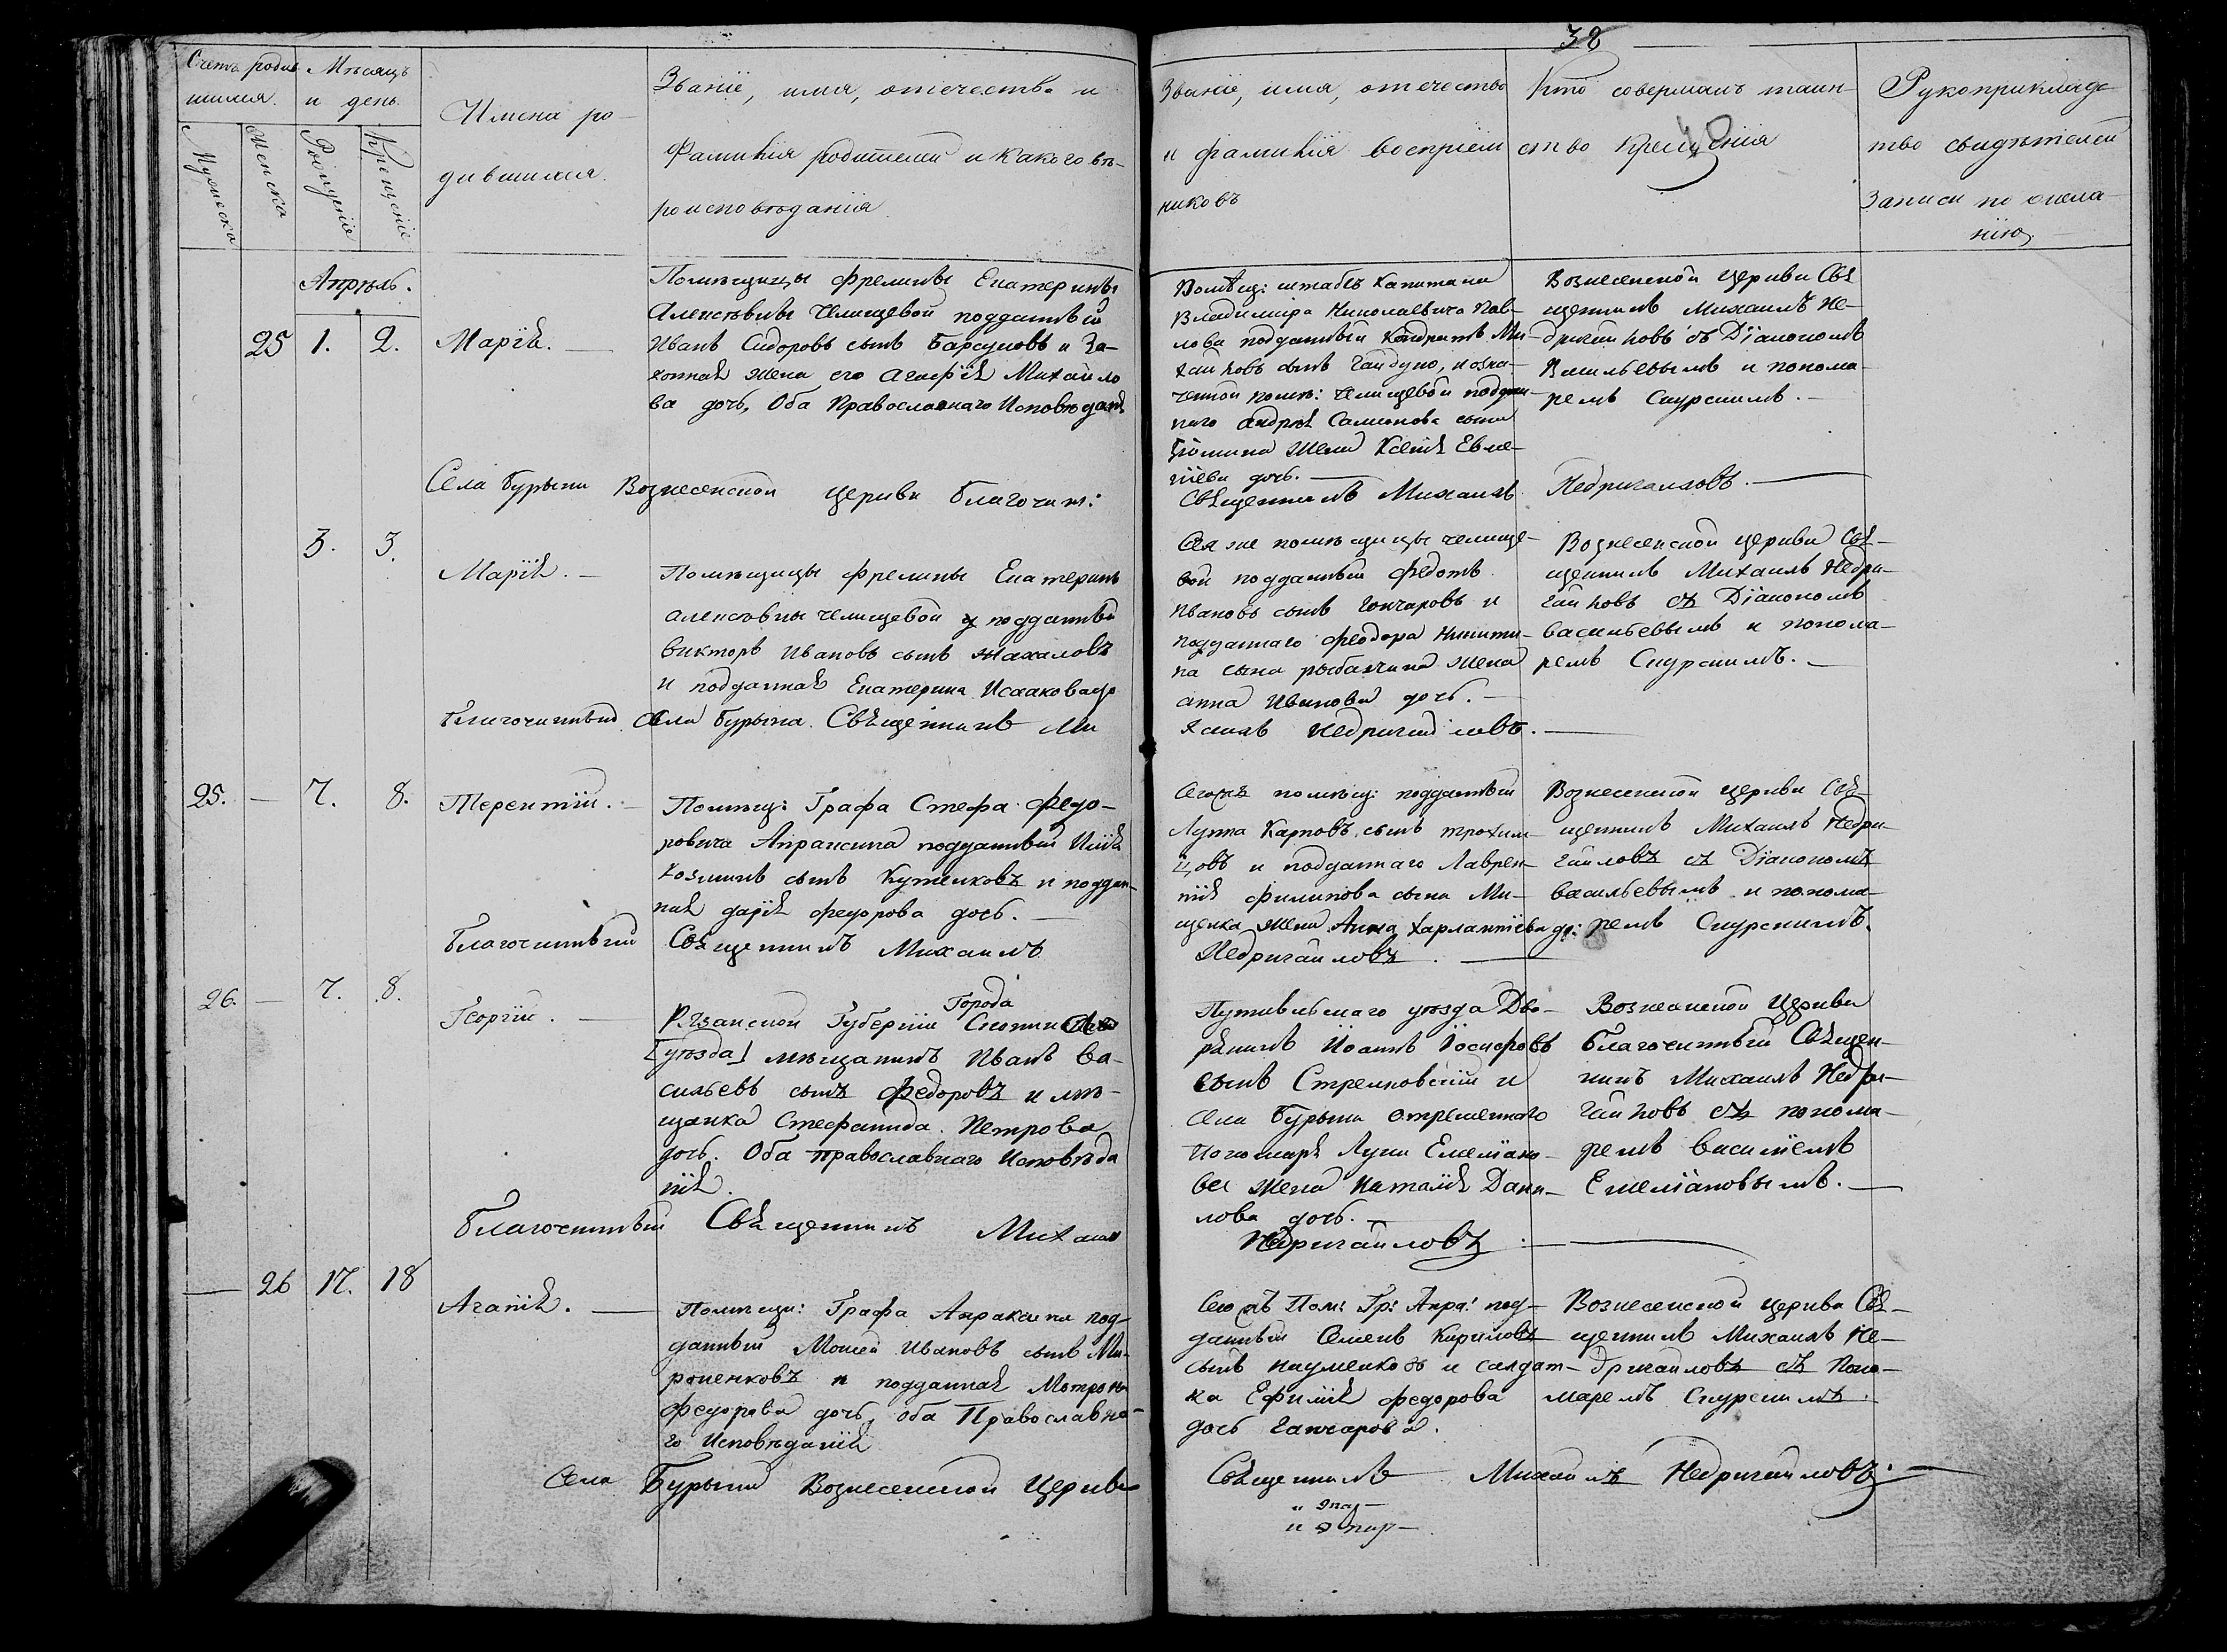 38
Счетъ родив
шихся.
Мѣсяцъ
и день.
Мужеска
Женска
Рожденіе
Крещеніе
Имена ро-
дившихся.
Званіе, имя, отечество и
Фамилія родителей и какого вѣ-
роисповѣданія
Званіе, имя, отечество
и фамилія воспріем
никовъ
Кто совершалъ таин-
ство крещенія
Рукоприкладс
тво свидѣтелей
Записи по жела-
нію
Апрѣль.
25 1. 2. Марія.
Помѣщицы Фрелины Екатерины
Алексѣевны Челищевой подданный
Иванъ Сидоровъ сынъ Барсуковъ и За-
конная жена его Агафія Михайло
ва дочь, Оба Православнаго Исповѣдані
Помѣщ: штабсъ Капитана
Владиміра Николаевича Пав-
лова подданный Кондратъ Ми-
хайловъ сынъ Гайдуко, и озна-
ченной помѣ: Челищевой поддан-
наго Андрея сына
жена Ксенія Евме-
ніева дочь.
Вознесенской Церкви Свя
щенникъ Михаилъ Не-
дригайловъ съ Діакономъ
Васильевымъ и понома-
ремъ Скурскимъ.
Села Бурыни Вознесенской Церкви Благочин:
Священникъ Михаилъ Недригайловъ.
3. 3. Марія.
Помѣщицы Фрелины Екатерины
Алексѣвны Челищевой подданный
Викторъ Ивановъ сынъ Жахаловъ
и подданная Екатерина Исаакова до
Сея же помѣщицы Челище-
вой подданный Федотъ
Ивановъ сынъ Гончаровъ и
подданнаго Феодора Никити-
на сына жена
Анна Иванова дочь.
Вознесенской Церкви Свя-
щенникъ Михаилъ Недри-
гайловъ съ Діакономъ
Васильевымъ и понома-
ремъ Скурскимъ.
Благочинный Села Бурыни Священникъ Ми
хаилъ Недригайловъ.
25. — 7. 8. Терентій.
Помѣщ: Графа Стефа: Федо-
ровича Апраксина подданный Илія
Козминъ сынъ Кутенковъ и поддан-
ная Дарія Федорова дочь.
Сегожъ помѣщ: подданный
Луппа Карповъ сынъ Трохим-
цовъ и подданнаго Лаврен-
тія Филипова сына Ми-
щенка жена Анна Харлампіева до:
Вознесенской Церкви Свя-
щенникъ Михаилъ Недри-
гайловъ съ Діакономъ
Васильевымъ и понома-
ремъ Скурскимъ.
Благочинный Священникъ Михаилъ
Недригайловъ.
26. — 7. 8. Георгій.
Города
Рязанской Губерніи Скопина
[уѣзда] мѣщанинъ Иванъ Ва-
сильевъ сынъ Федоровъ и мѣ-
щанка Стефанида Петрова
дочь. Оба православнаго Исповѣда
нія.
Путивльскаго уѣзда Дво-
рянинъ Іоаннъ Іосифовъ
сынъ Стрелковскій и
села Бурыни отрешеннаго
пономаря Луки Емеліано-
ва жена Наталія Дани-
лова дочь.
Вознесенской Церкви
Благочинный Священ-
никъ Михаилъ Недри-
гайловъ съ понома-
ремъ Василіемъ
Емеліановымъ.
Благочинный Священникъ Михаилъ
Недригайловъ.
— 26 17. 18 Агапія.
Помѣщи: Графа Апраксина под-
данный Моисей Ивановъ сынъ Ми-
роненковъ и подданная Матрона
Федорова дочь, оба Православна-
го Исповѣданія
Сегожъ Пом: Гр: Апра: под-
данный Семенъ Кириловъ
сынъ Науменковъ и салдат-
ка Ефимія Федорова
дочь Ганчарова.
Вознесенской Церкви Свя-
щенникъ Михаилъ Не-
дригайловъ съ Поно-
маремъ Скурскимъ.
Села Бурыни Вознесенской Церкви
Священникъ Михаилъ Недригайловъ.